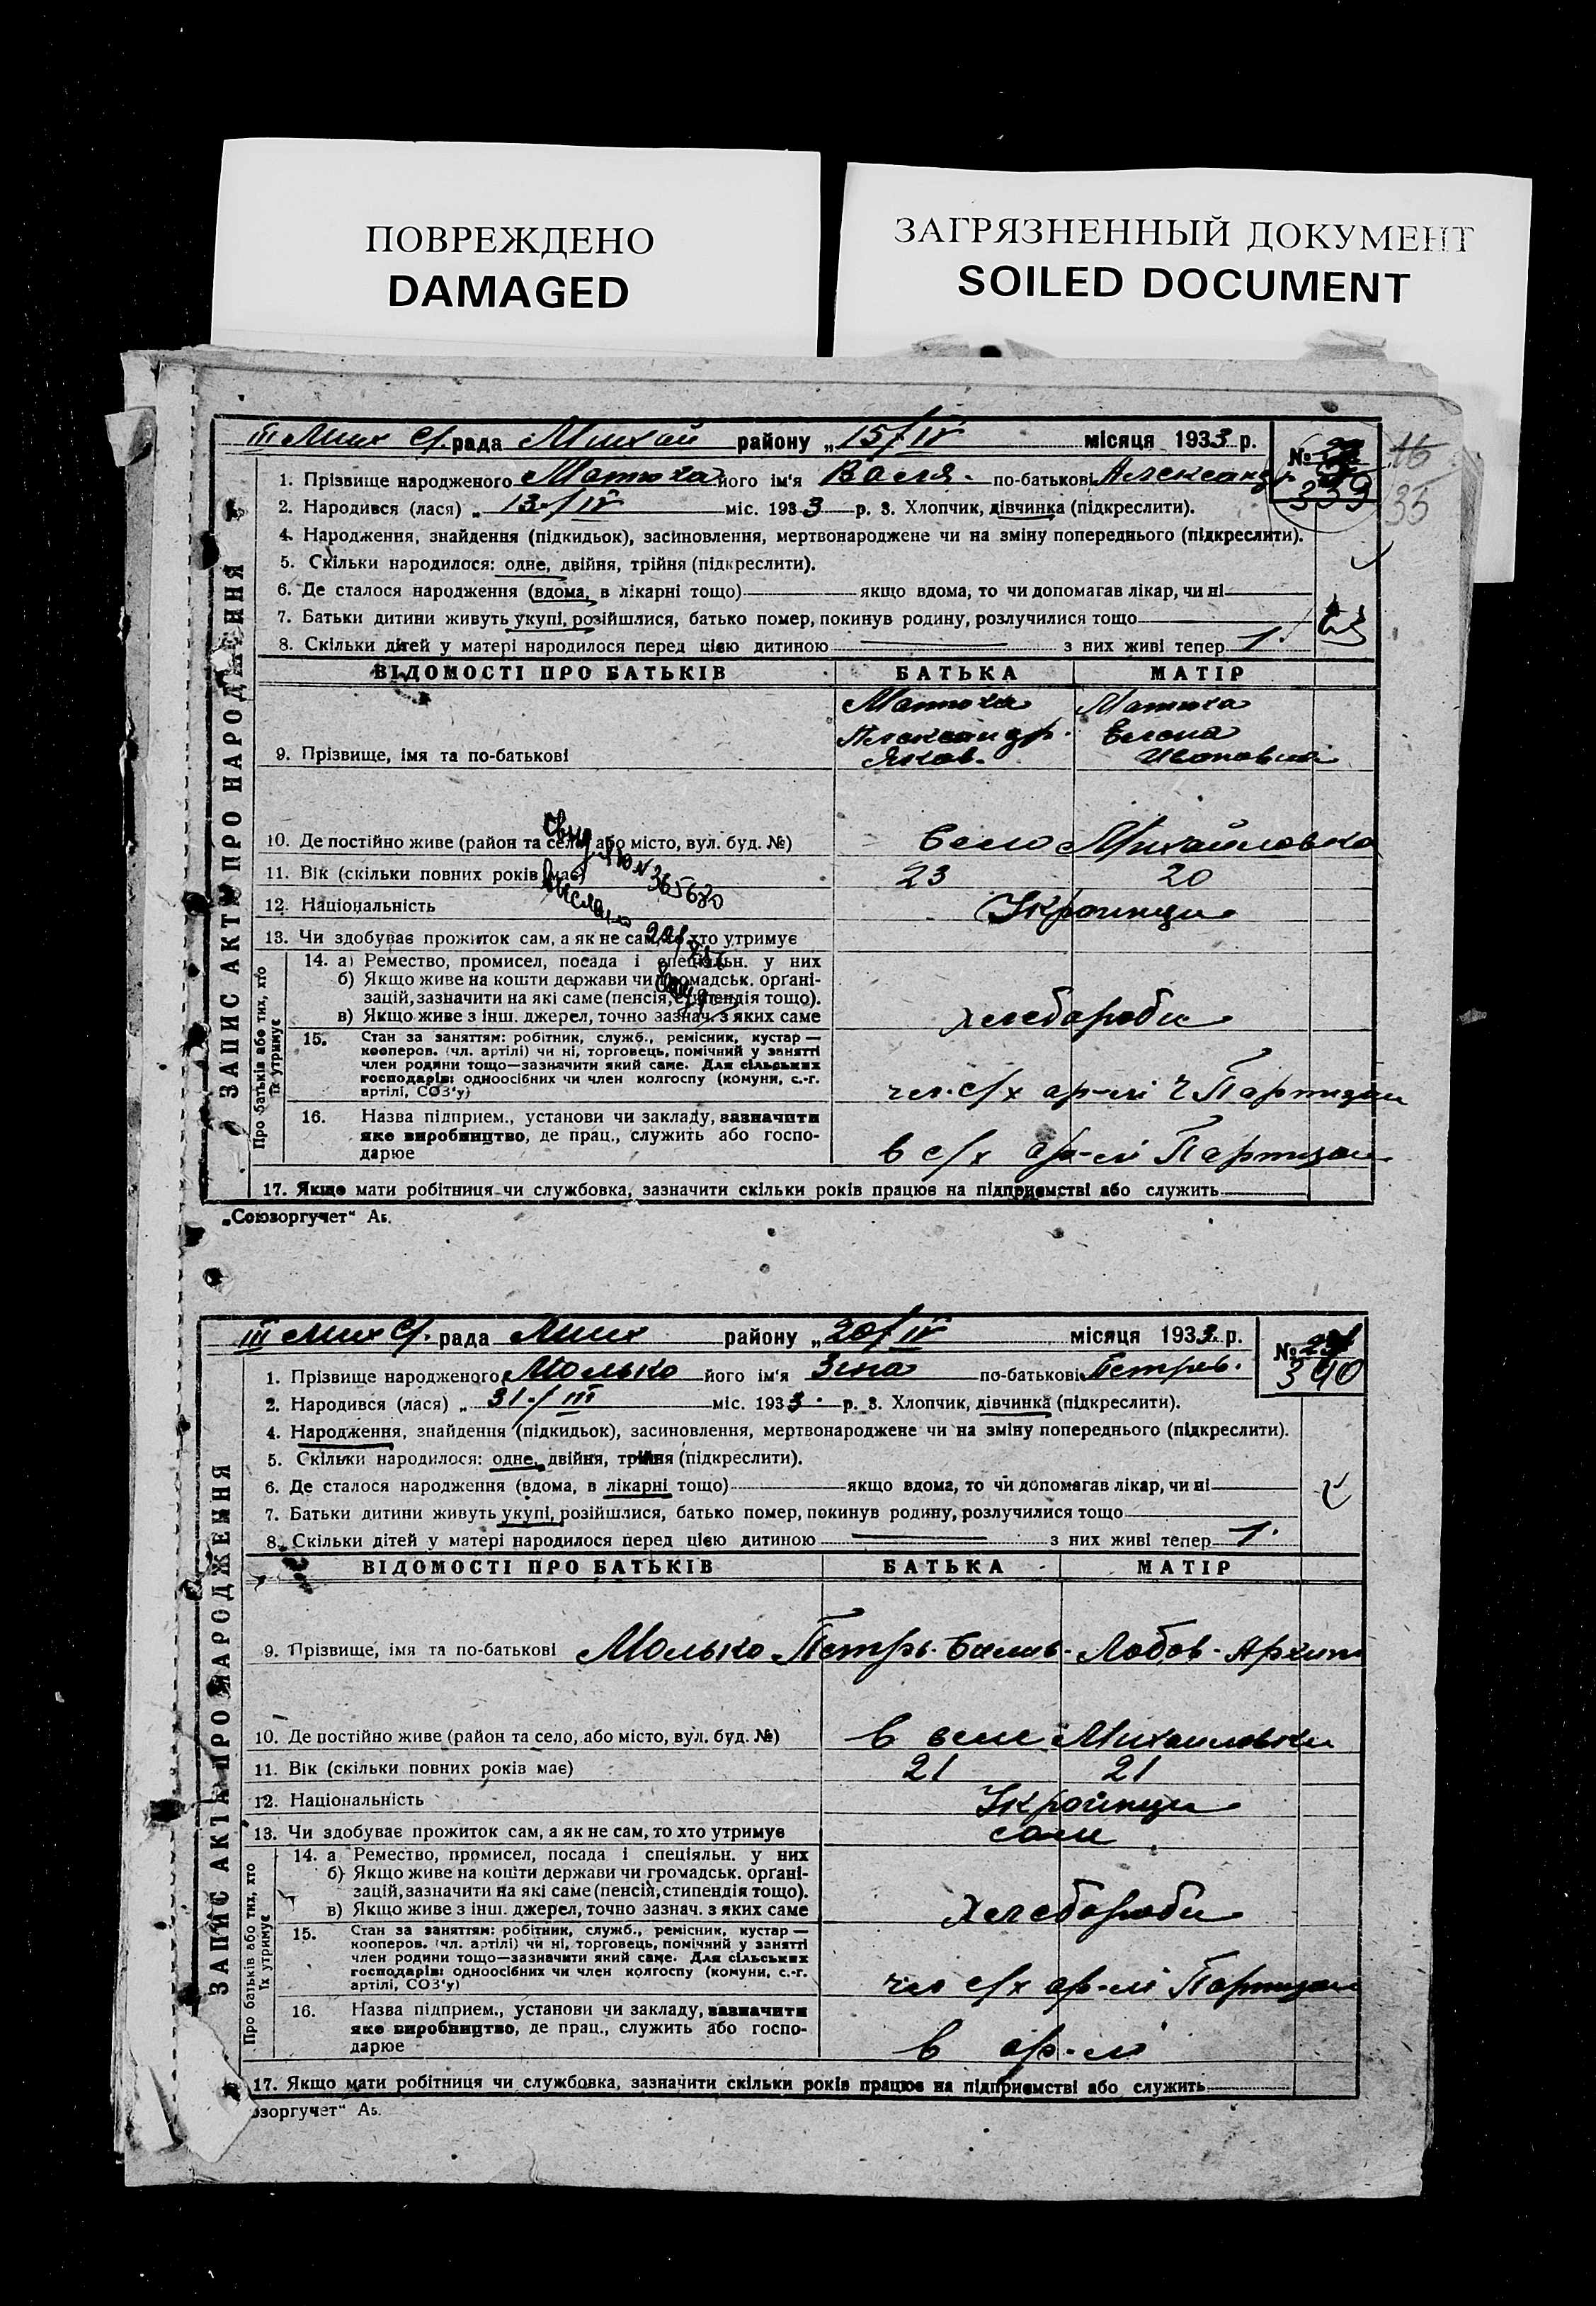 ПОВРЕЖДЕНО
DAMAGED
ЗАГРЯЗНЕННЫЙ ДОКУМЕНТ
SOILED DOCUMENT
ЗАПИС АКТУ ПРО НАРОДЖЕННЯ
III Мих С/. рада Михай району „15/IV місяця 1933 р.
№ 339
16
35
1. Прізвище народженого Матюха його ім'я Валя. по-батькові Александр
2. Народився (лася) „ 13./IV міс. 1933 р. 3. Хлопчик, дівчинка (підкреслити).
4. Народження, знайдення (підкидьок), засиновлення, мертвонароджене чи на зміну попереднього (підкреслити).
5. Скільки народилося: одне, двійня, трійня (підкреслити).
6. Де сталося народження (вдома, в лікарні тощо) якщо вдома, то чи допомагав лікар, чи ні
7. Батьки дитини живуть укупі, розійшлися, батько помер, покинув родину, розлучилися тощо
8. Скільки дітей у матері народилося перед цією дитиною з них живі тепер 1.
ВІДОМОСТІ ПРО БАТЬКІВ БАТЬКА МАТІР
9. Прізвище, імя та по-батькові
Матюха Александр. Яков.
Матюха Елена Ивановна
10. Де постійно живе (район та село, або місто, вул. буд. №) Село Михайловка
11. Вік (скільки повних років має) 23 20
12. Національність Украинци
13. Чи здобуває прожиток сам, а як не сам, то хто утримує
Про батьків або тих, хто їх утримує
14. а) Ремество, промисел, посада і спеціяльн. у них
б) Якщо живе на кошти держави чи громадськ. органі-
зацій, зазначити на які саме (пенсія, стипендія тощо).
в) Якщо живе з інш. джерел, точно зазнач. з яких саме Хлебороби
15. Стан за заняттям: робітник, служб., ремісник, кустар —
кооперов. (чл. артілі) чи ні, торговець, помічний у занятті
член родини тощо—зазначити який саме. Для сільських
господарів: одноосібних чи член колгоспу (комуни, с.-г.
артілі, СОЗ'у) чл. с/х ар-лі Ч Партизан
16. Назва підприєм., установи чи закладу, зазначити
яке виробництво, де прац., служить або госпо-
дарює в с/х ар-лі Партизан
17. Якщо мати робітниця чи службовка, зазначити скільки років працює на підприємстві або служить
„Союзоргучет" Аѣ.
ЗАПИС АКТА ПРО НАРОДЖЕННЯ
III Мих С/. рада Мих району „20/IV місяця 1933 р.
№ 340
1. Прізвище народженого Молько його ім'я Зина по-батькові Петров.
2. Народився (лася) „ 31./III міс. 1933 р. 3. Хлопчик, дівчинка (підкреслити).
4. Народження, знайдення (підкидьок), засиновлення, мертвонароджене чи на зміну попереднього (підкреслити).
5. Скільки народилося: одне, двійня, трійня (підкреслити).
6. Де сталося народження (вдома, в лікарні тощо) якщо вдома, то чи допомагав лікар, чи ні
7. Батьки дитини живуть укупі, розійшлися, батько помер, покинув родину, розлучилися тощо
8. Скільки дітей у матері народилося перед цією дитиною з них живі тепер 1.
ВІДОМОСТІ ПРО БАТЬКІВ БАТЬКА МАТІР
9. Прізвище, імя та по-батькові Молько Петрь Лобов - Архип
10. Де постійно живе (район та село, або місто, вул. буд. №) в селе Михаиловки
11. Вік (скільки повних років має) 21 21
12. Національність Украинци
13. Чи здобуває прожиток сам, а як не сам, то хто утримує сами
Про батьків або тих, хто їх утримує
14. а Ремество, промисел, посада і спеціяльн. у них
б) Якщо живе на кошти держави чи громадськ. органі-
зацій, зазначити на які саме (пенсія, стипендія тощо).
в) Якщо живе з інш. джерел, точно зазнач. з яких саме Хлебороби
15. Стан за заняттям: робітник, служб., ремісник, кустар —
кооперов. (чл. артілі) чи ні, торговець, помічний у занятті
член родини тощо—зазначити який саме. Для сільських
господарів: одноосібних чи член колгоспу (комуни, с.-г.
артілі, СОЗ'у) чл с/х ар-лі Партизан
16. Назва підприєм., установи чи закладу, зазначити
яке виробництво, де прац., служить або госпо-
дарює в ар-лі
17. Якщо мати робітниця чи службовка, зазначити скільки років працює на підприємстві або служить
озоргучет" Аѣ.